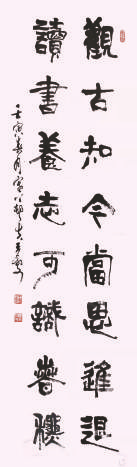 觀古知今當思進退
讀書養志可識春龝
壬寅春月